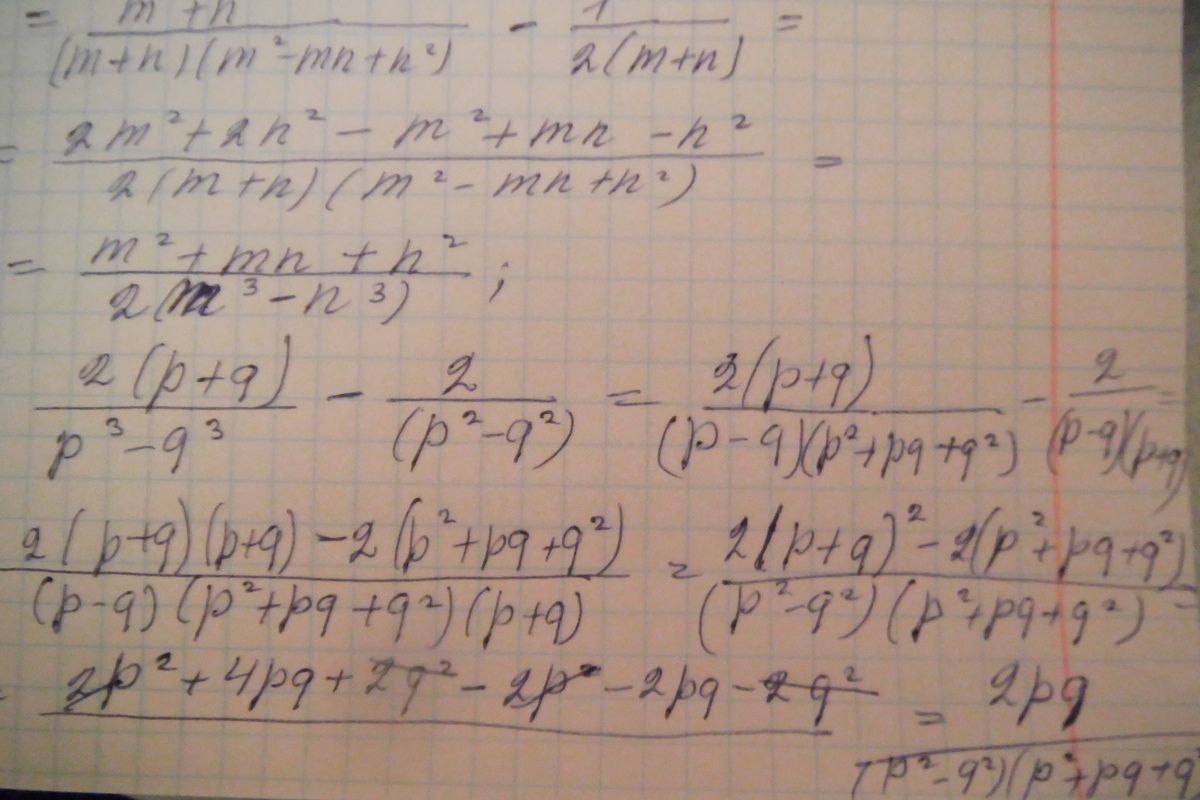 = m + n / (m+n)(m²-mn+n²) - 1 / 2(m+n) =
= 2m²+2n² - m²+mn -n² / 2(m+n)(m²-mn+n²) =
= m²+mn+n² / 2(m³-n³) ;
2(p+q) / p³-q³ - 2 / (p²-q²) = 2(p+q) / (p-q)(p²+pq+q²) - 2 / (p-q)(p+q) =
2(p+q)(p+q) -2(p²+pq+q²) / (p-q)(p²+pq+q²)(p+q) = 2(p+q)² -2(p²+pq+q²) / (p²-q²)(p²+pq+q²) =
= 2p²+4pq+2q²-2p²-2pq-2q² / = 2pq / (p²-q²)(p²+pq+q²